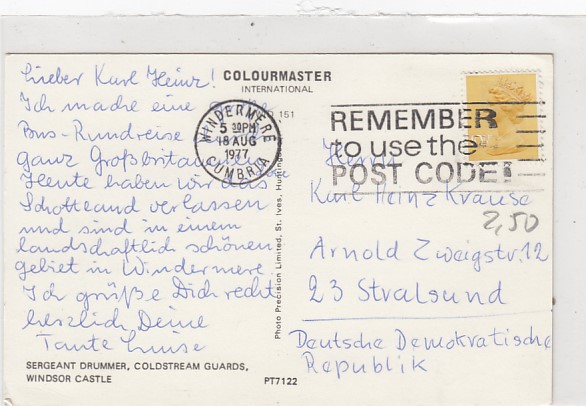 Lieber Karl Heinz!
Ich mache eine
Bus-Rundreise
ganz Großbritannien
Heute haben wir
Schottland verlassen
und sind in einem
landschaftlich schönen
gebiet in Windermere
Ich grüße Dich recht
herzlich Deine
Tante Luise
SERGEANT DRUMMER, COLDSTREAM GUARDS,
WINDSOR CASTLE
PT7122
COLOURMASTER
INTERNATIONAL
151
WINDERMERE
5 30PM
18 AUG
1977
CUMBRIA
REMEMBER
to use the
POST CODE!
Photo Precision Limited, St. Ives,
Herrn
Karl Heinz Krause
2,50
Arnold Zweigstr. 12
23 Stralsund
Deutsche Demokratische
Republik